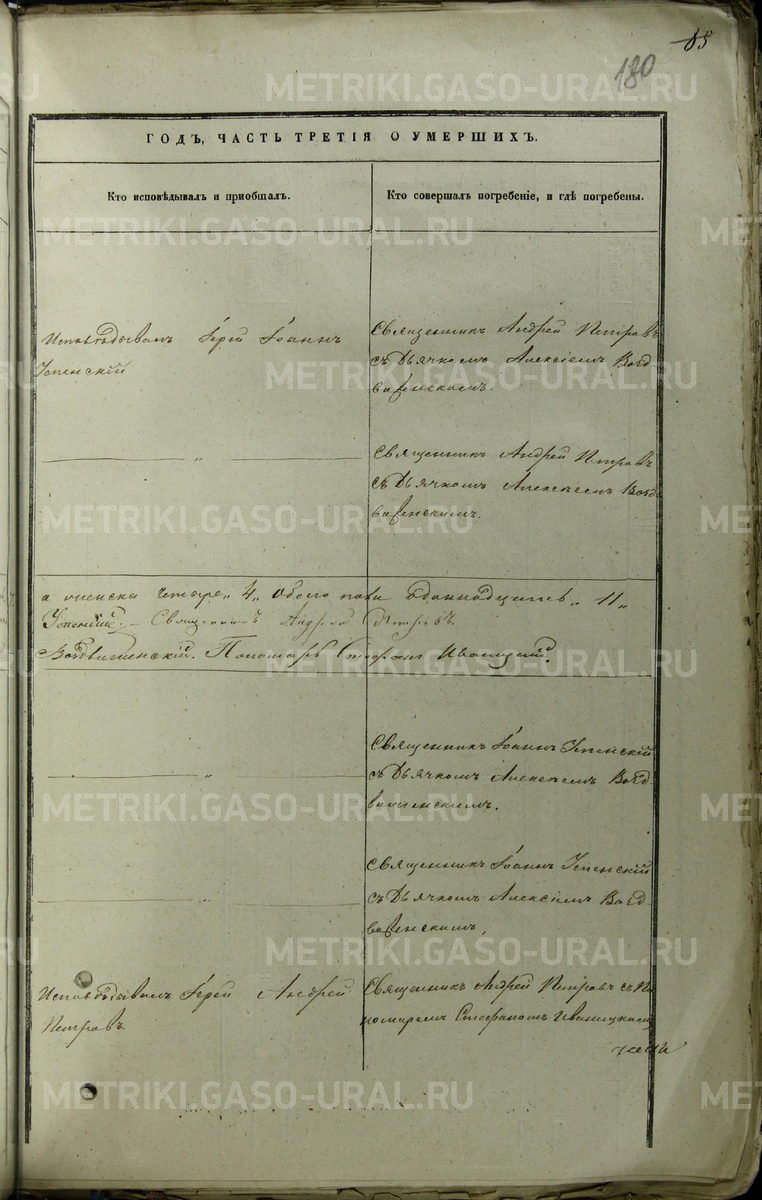 85
180
ГОДЪ, ЧАСТЬ ТРЕТІЯ О УМЕРШИХЪ.
Кто исповѣдывалъ и пріобщалъ.
Кто совершалъ погребеніе, и гдѣ погребены.
Исповѣдывалъ Іерей Іоаннъ
Успенскій
Священникъ Андрей Петровъ
съ Дьячкомъ Алексіемъ Возд
виженскимъ.
„
Священникъ Андрей Петровъ
съ Дьячкомъ Алексѣемъ Возд
виженскимъ.
а женска четыре „ 4 „ обоего пола одиннадцать „ 11 „
Успенскій. Священникъ Андрей Петровъ
Воздвиженскій. Пономарь Стефанъ Иваницкій.
„
Священникъ Іоаннъ Успенскій
съ Дьячкомъ Алексѣемъ Возд
виженскимъ.
„
Священникъ Іоаннъ Успенскій
съ Дьячкомъ Алексіемъ Возд
виженскимъ.
Исповѣдывалъ Іерей Андрей
Петровъ.
Священникъ Андрей Петровъ съ По
номаремъ Стефаномъ Иваницкимъ
METRIKI.GASO-URAL.RU